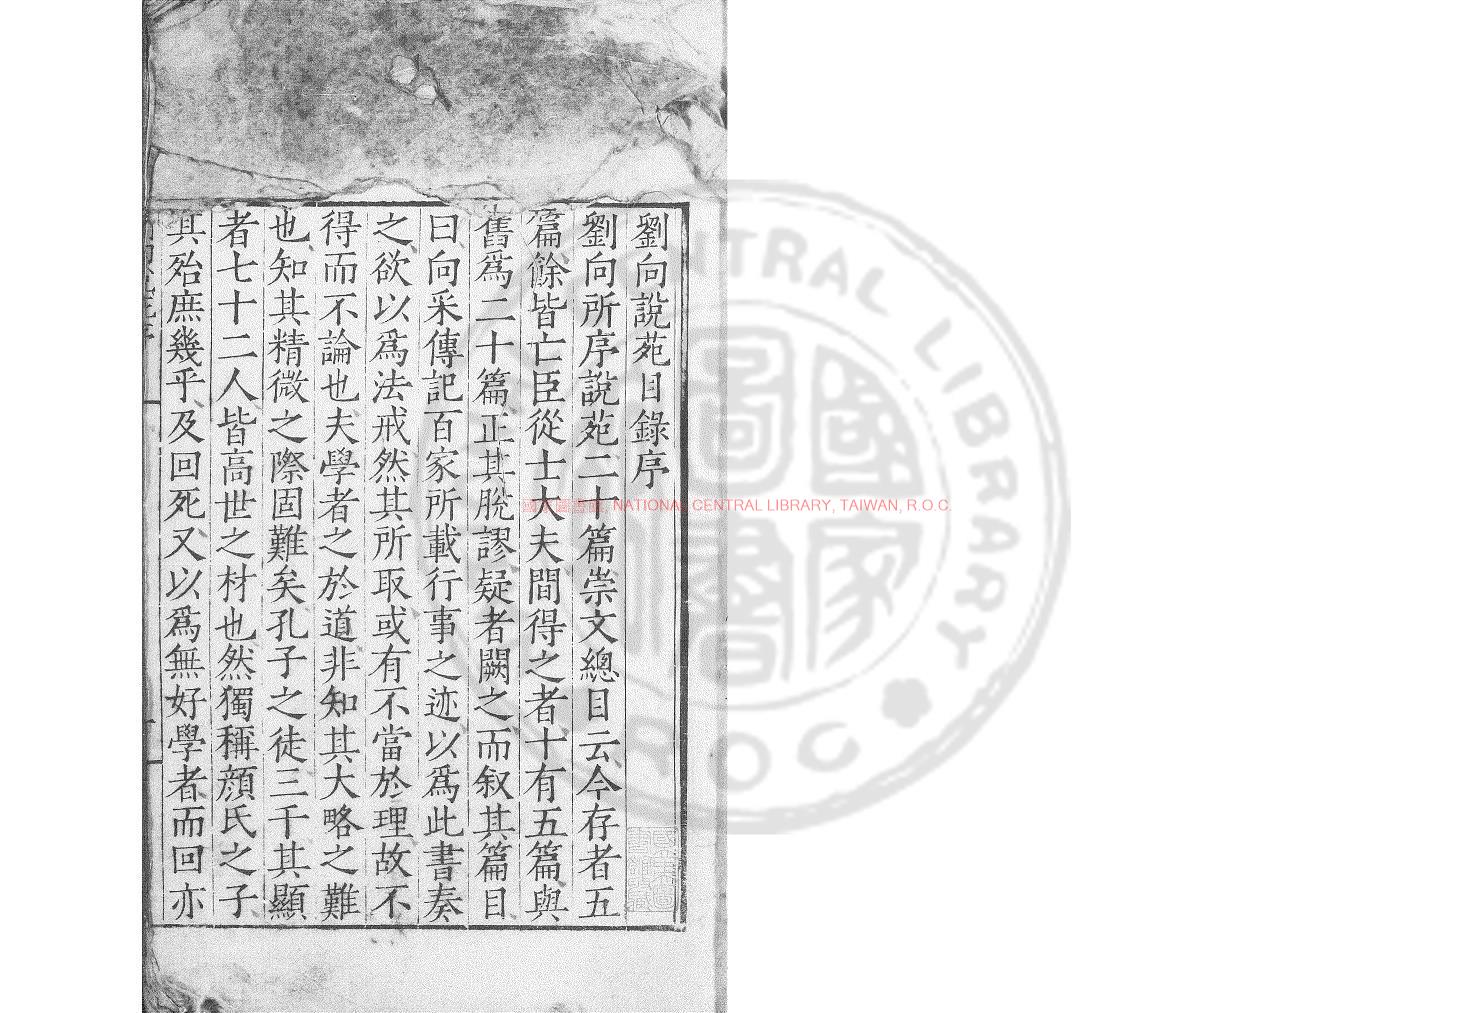 劉向說苑目錄序
劉向所序說苑二十篇崇文總目云今存者五
篇餘皆亡臣從士大夫間得之者十有五篇與
舊爲二十篇正其脫謬疑者闕之而叙其篇目
曰向采傳記百家所載行事之迹以爲此書奏
之欲以爲法戒然其所取或有不當於理故不
得而不論也夫學者之於道非知其大略之難
也知其精微之際固難矣孔子之徒三千其顯
者七十二人皆高世之材也然獨稱顏氏之子
其殆庶幾乎及回死又以爲無好學者而回亦
國家圖書館, NATIONAL CENTRAL LIBRARY, TAIWAN, R.O.C.
CENTRAL LIBRARY
R.O.C
國家圖書